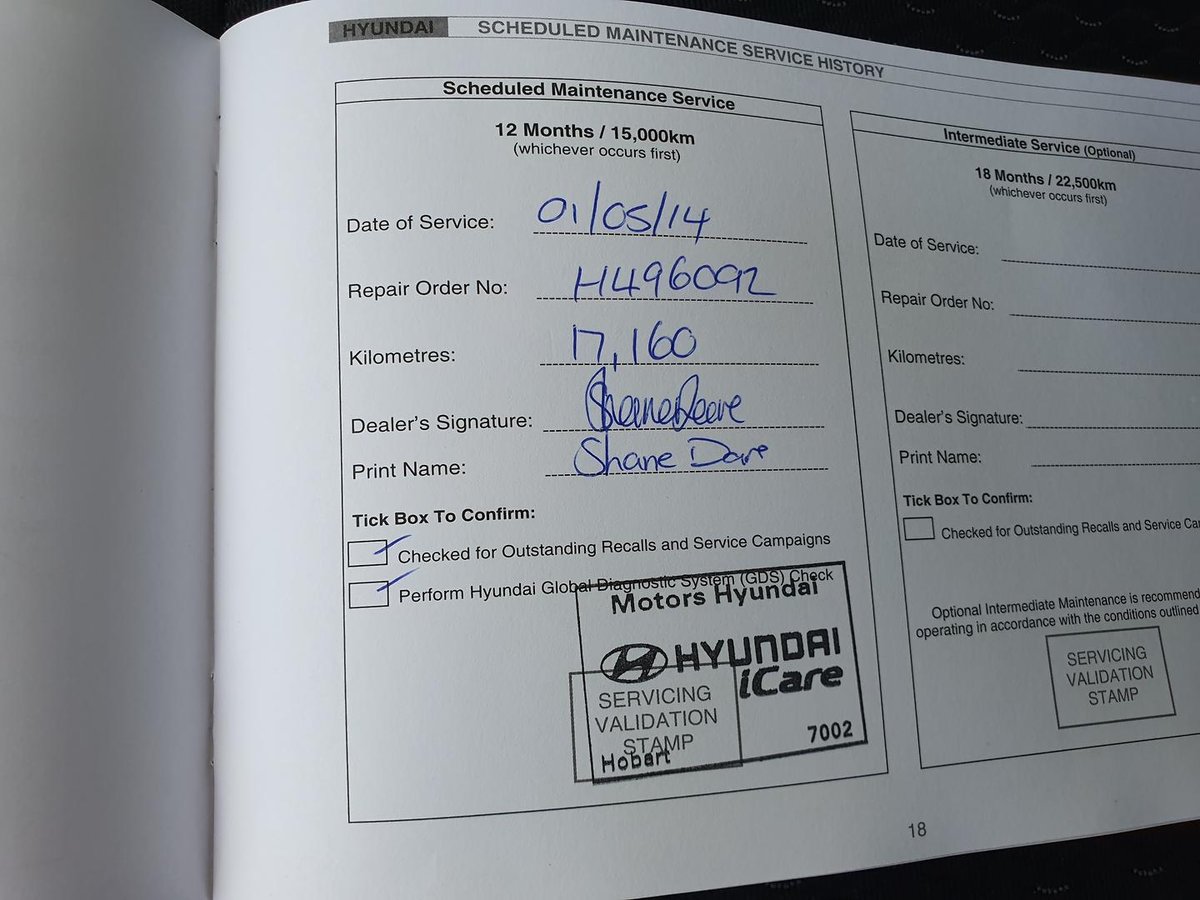 HYUNDAI SCHEDULED MAINTENANCE SERVICE HISTORY
Scheduled Maintenance Service
12 Months / 15,000km
(whichever occurs first)
Date of Service: 01/05/14
Repair Order No: H496092
Kilometres: 17,160
Dealer's Signature:
Print Name: Shane Dare
Tick Box To Confirm:
Checked for Outstanding Recalls and Service Campaigns
Perform Hyundai Global Diagnostic System (GDS) Check
Motors Hyundai
HYUNDAI
iCare
SERVICING
VALIDATION
STAMP
7002
Hobart
Intermediate Service (Optional)
18 Months / 22,500km
(whichever occurs first)
Date of Service:
Repair Order No:
Kilometres:
Dealer's Signature:
Print Name:
Tick Box To Confirm:
Checked for Outstanding Recalls and Service Ca
Optional Intermediate Maintenance is recommend
operating in accordance with the conditions outlined
SERVICING
VALIDATION
STAMP
18